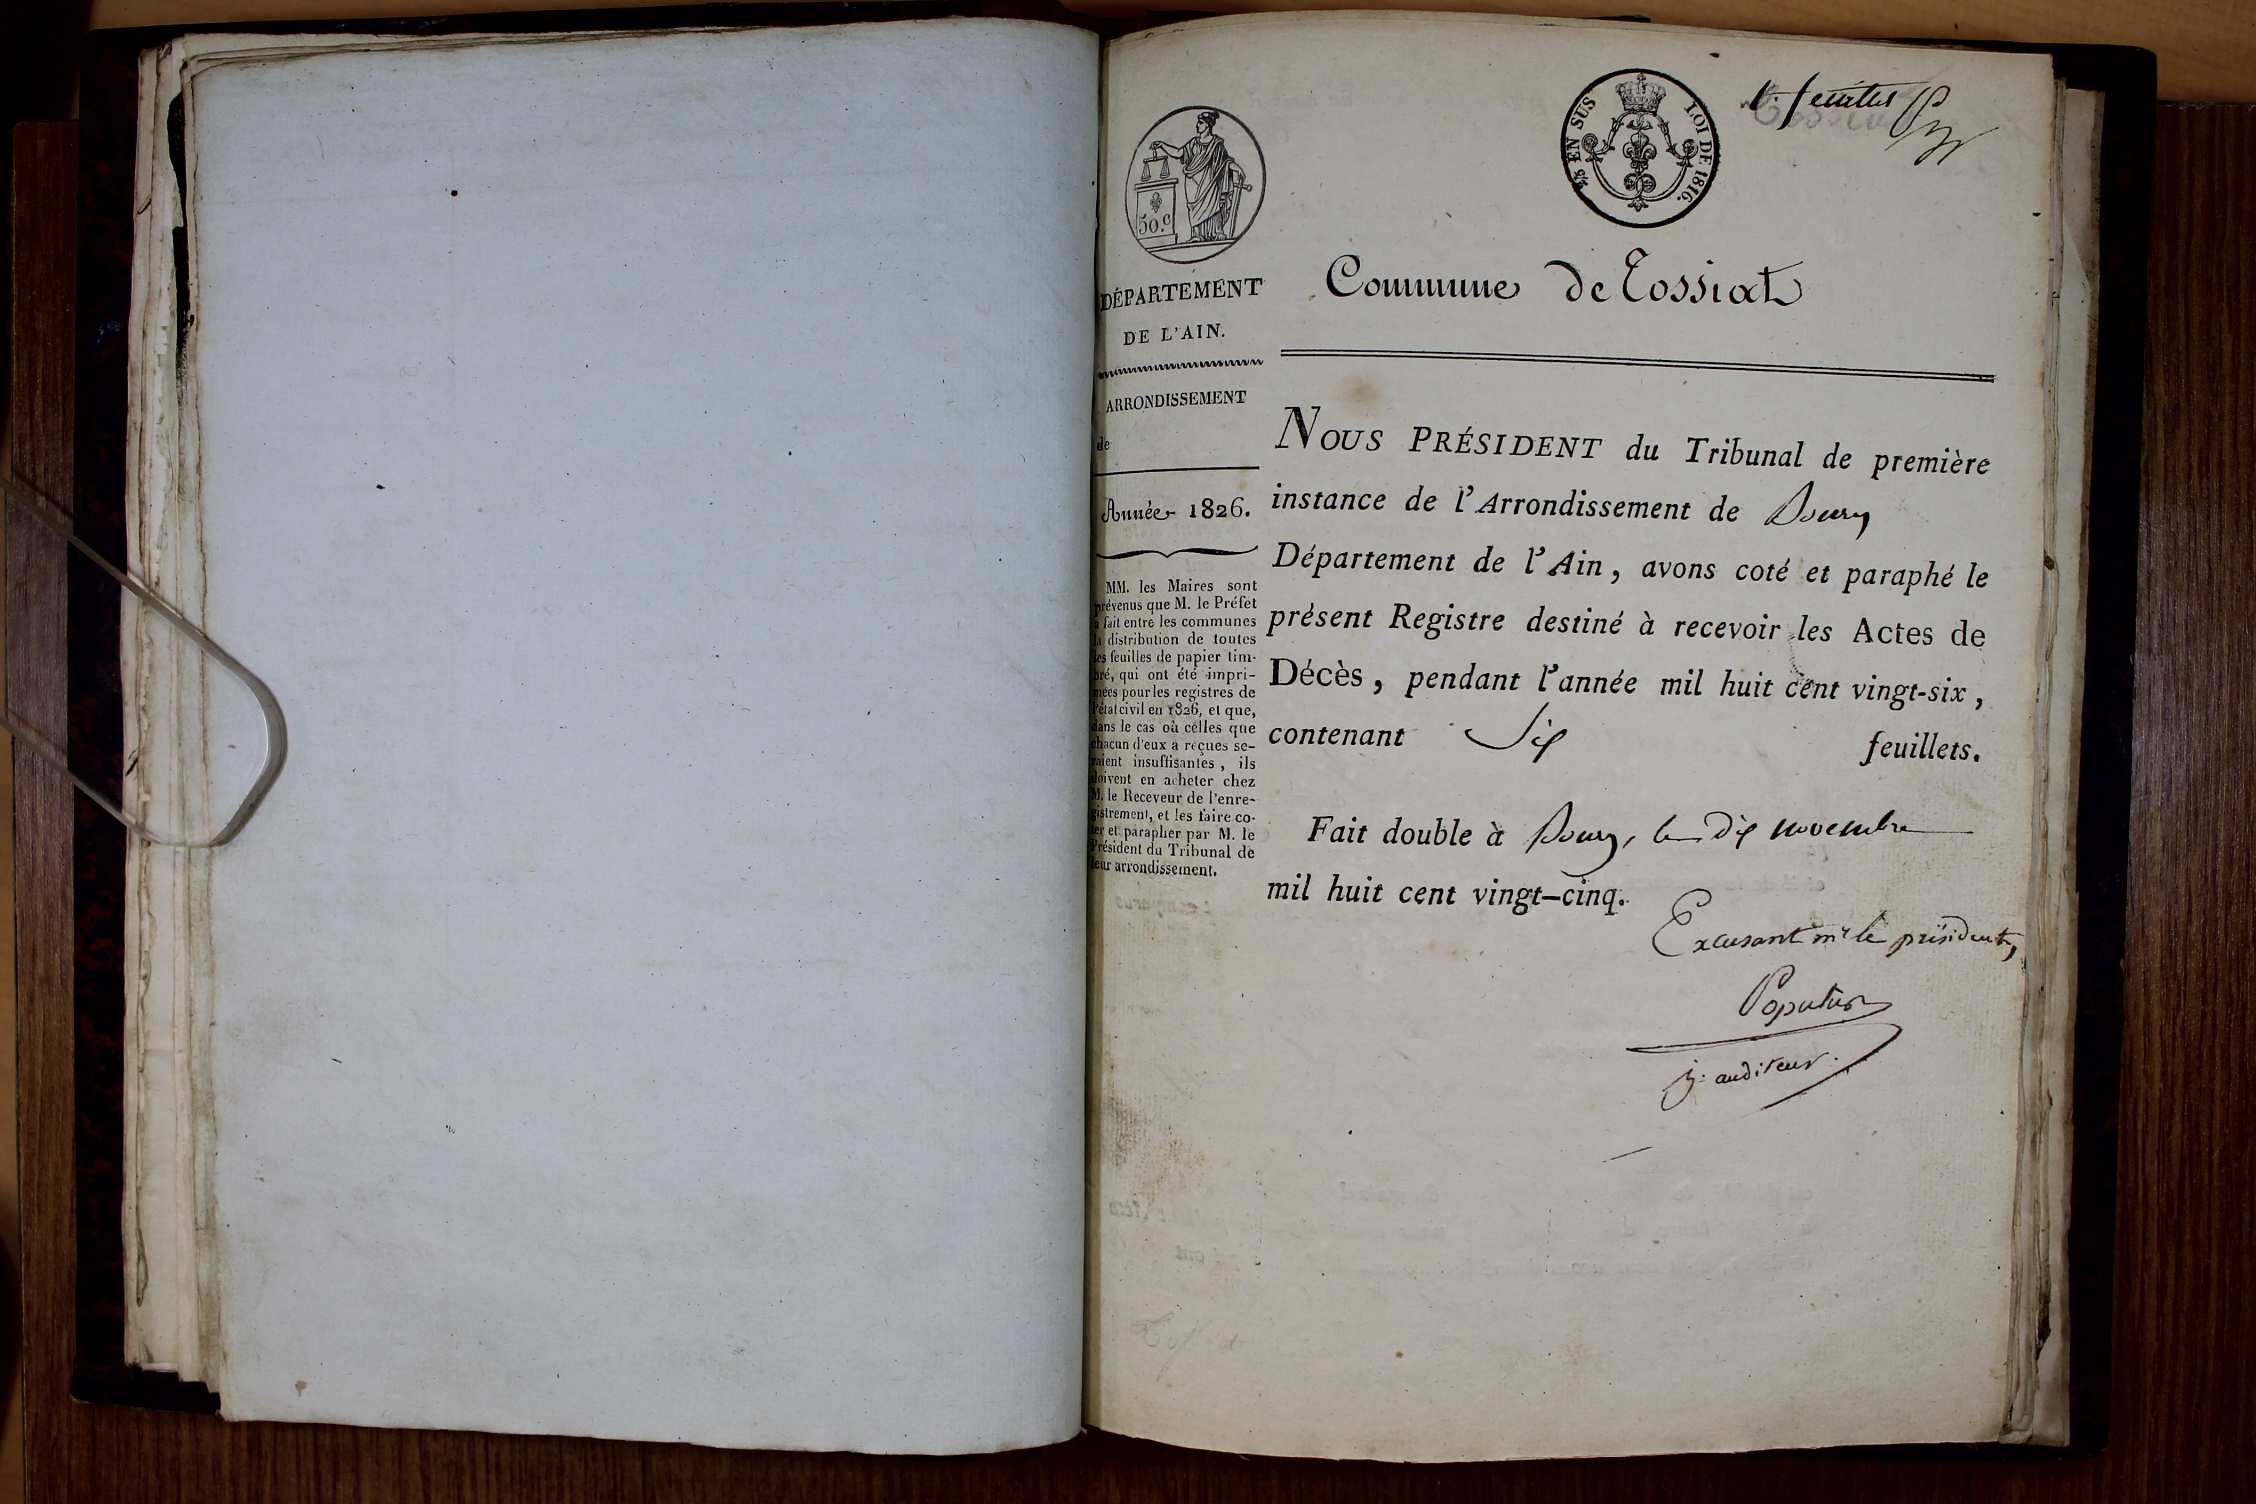 50.c
2/5 EN SUS LOI DE 1816.
1.er feuillet
Commune de Tossiat
DÉPARTEMENT
DE L'AIN.
ARRONDISSEMENT
de
Année 1826.
MM. les Maires sont
prévenus que M. le Préfet
a fait entre les communes
la distribution de toutes
les feuilles de papier tim-
bré, qui ont été impri-
mées pour les registres de
l'état civil en 1826, et que,
dans le cas où celles que
chacun d'eux a reçues se-
raient insuffisantes, ils
doivent en acheter chez
M. le Receveur de l'enre-
gistrement, et les faire co-
ter et parapher par M. le
Président du Tribunal de
leur arrondissement.
NOUS PRÉSIDENT du Tribunal de première
instance de l'Arrondissement de Bourg
Département de l'Ain, avons coté et paraphé le
présent Registre destiné à recevoir les Actes de
Décès, pendant l'année mil huit cent vingt-six,
contenant Six feuillets.
Fait double à Bourg, le dix novembre
mil huit cent vingt-cinq.
Excusant mr le président,
Populus
j. auditeur.